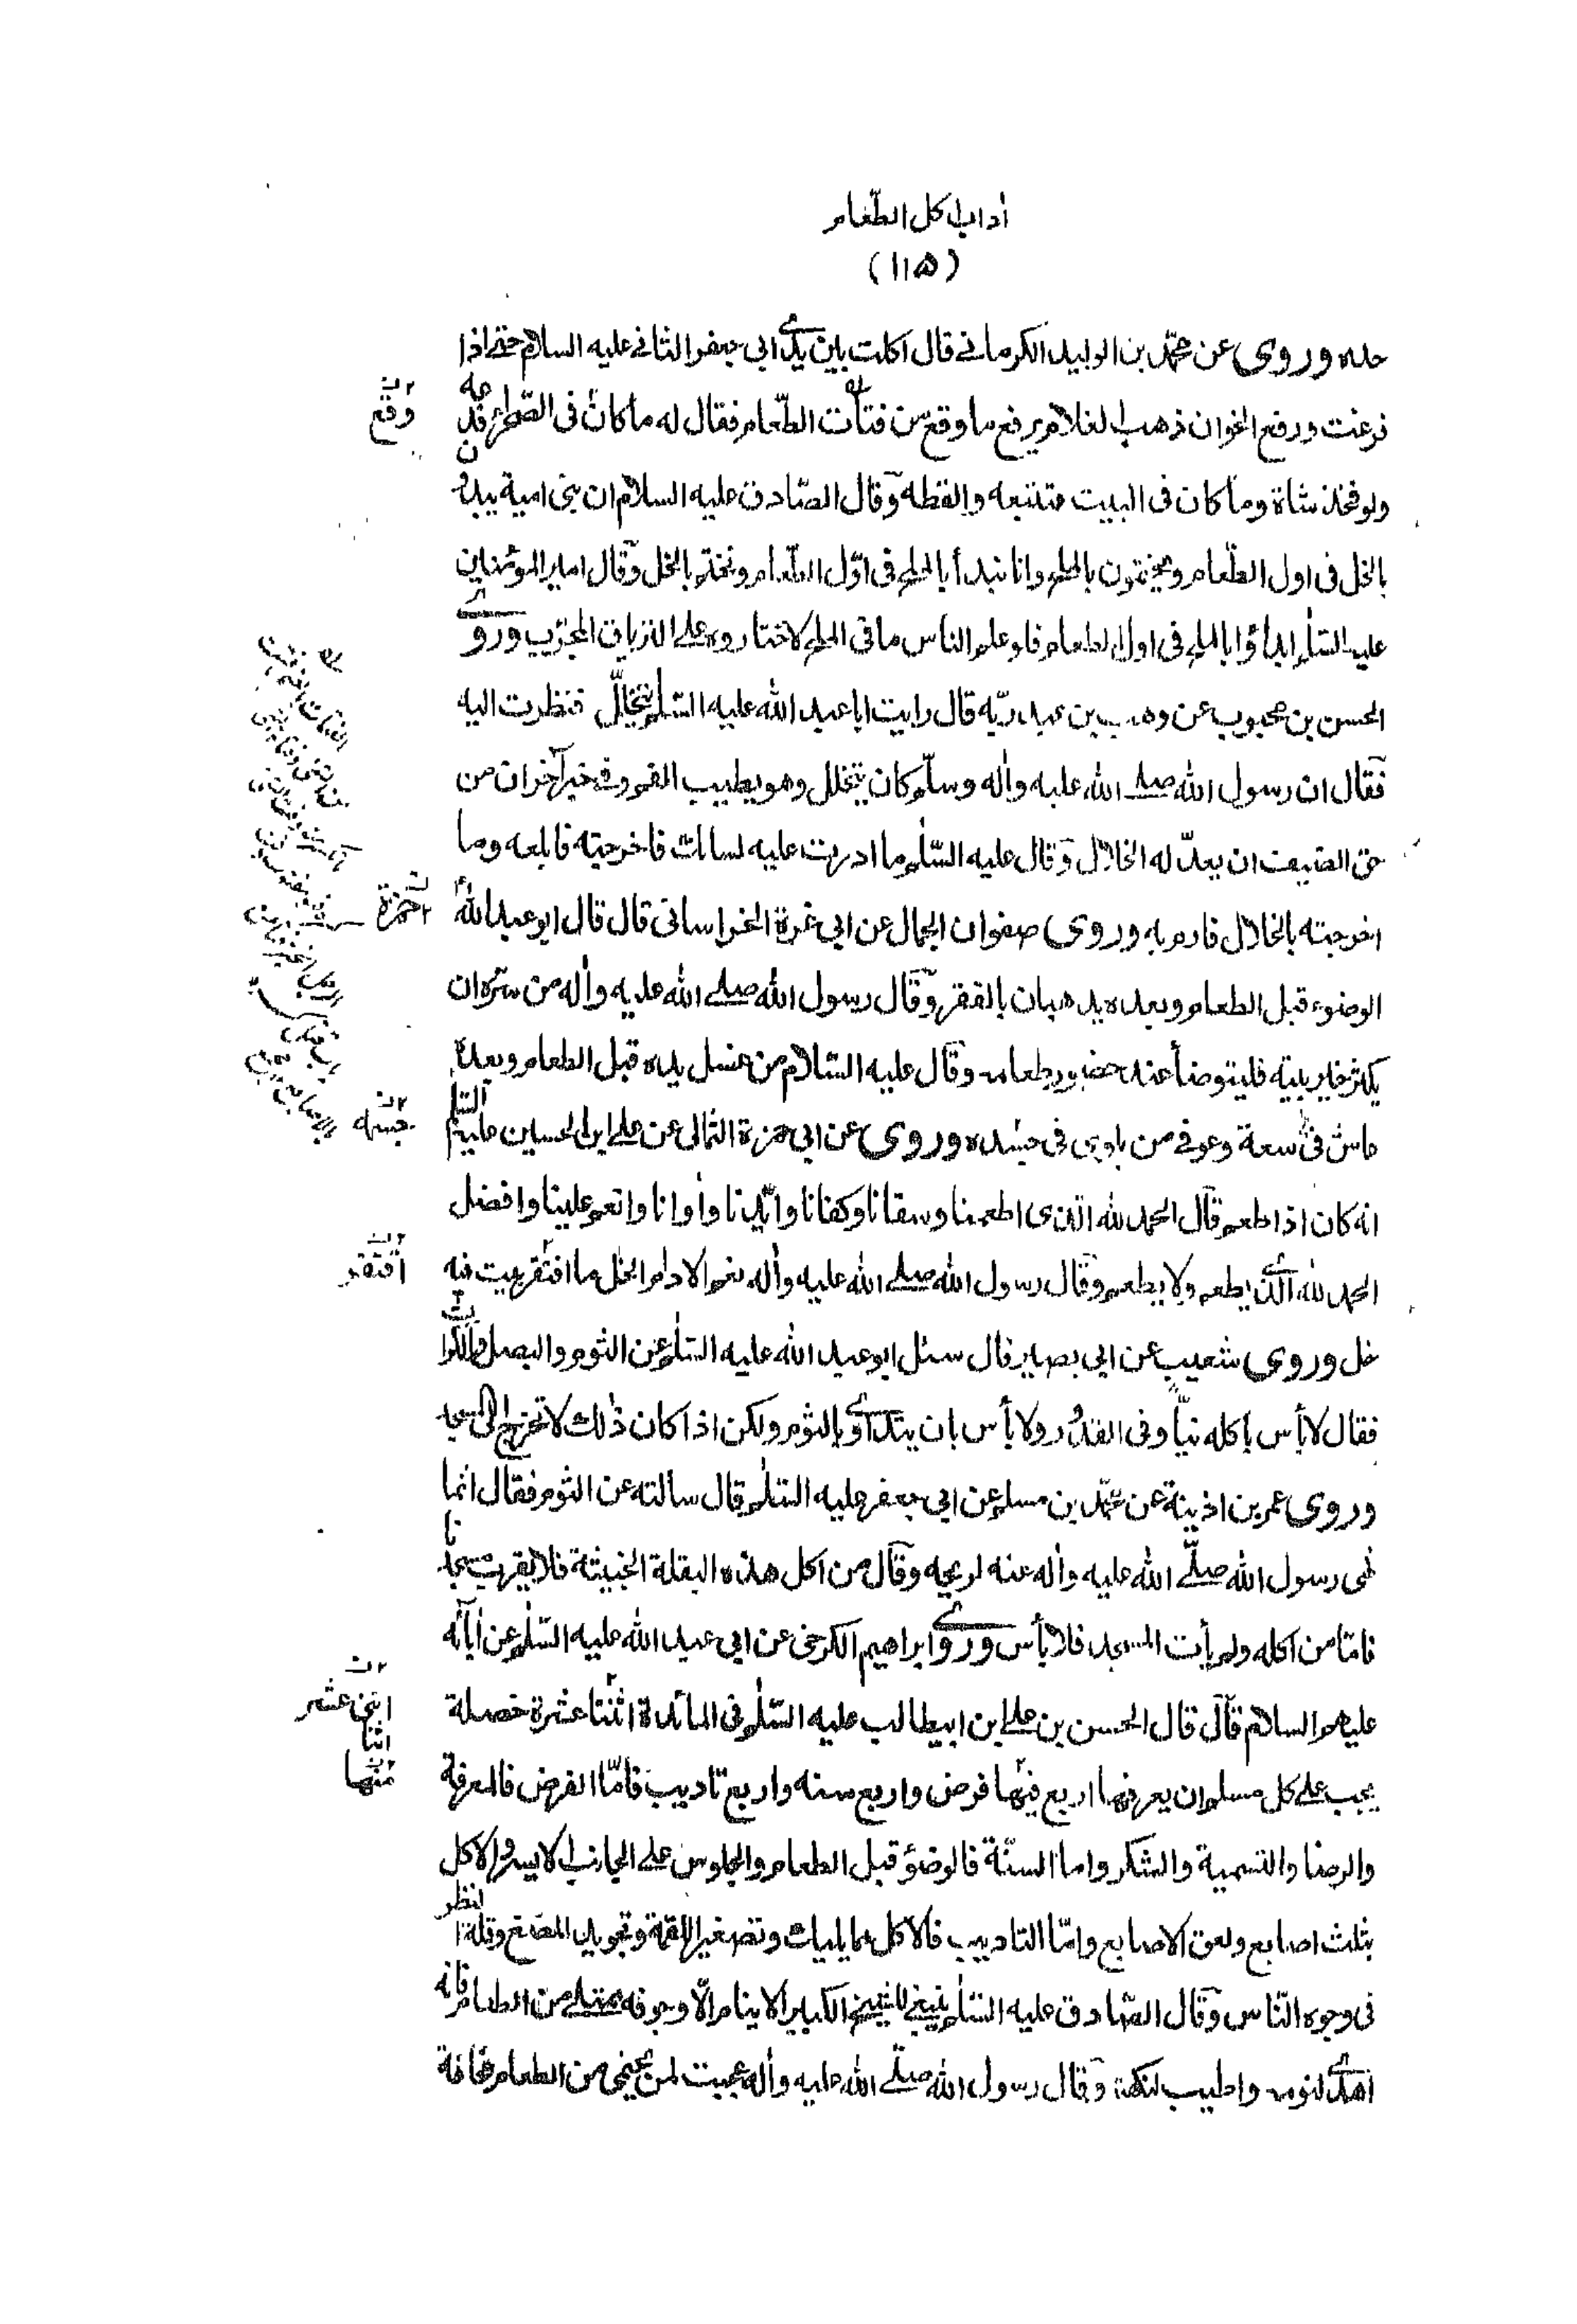 اٰداب اكل الطّعام
(١١٥)
حده وروى عن محمّد بن الوليد الكرمانى قال اكلت بين يدى ابى جعفر الثانى عليه السلام حتى اذا
فرغت ورفع الخوان ذهب الغلام يرفع ما وقع من فتات الطّعام فقال له ما كان فى الصّحراء فدعه
ولو فخذ شاة وما كان فى البيت فتتبعه والقطه وقال الصّادق عليه السلام ان بنى امية يبدؤن
بالخل فى اول الطّعام ويختمون بالملح وانا نبدأ بالملح فى اوّل الطّعام ونختم بالخل وقال امير المؤمنين
عليه السّلم ابدأوا بالملح فى اول الطعام فلو علم الناس ما فى الملح لاختاروه على الترياق المجرّب وروى
الحسن بن محبوب عن وهب بن عبد ربّه قال رايت ابا عبد الله عليه السّلم يتخلّل فنظرت اليه
فقال ان رسول الله صلى الله عليه واٰله وسلّم كان يتخلل وهو يطيب الفم وفى خبر آخر ان من
حق الضيف ان يعدّ له الخلال وقال عليه السّلم ما ادرت عليه لسانك فاخرجته فابلعه وما
اخرجته بالخلال فارم به وروى صفوان الجمال عن ابى غرة الخراسانى قال قال ابو عبد الله
الوضوء قبل الطعام وبعده يذهبان بالفقر وقال رسول الله صلى الله عليه واٰله من سرّه ان
يكثر خير بيته فليتوضأ عند حضور طعامه وقال عليه السّلام من غسل يده قبل الطعام وبعده
عاش فى سعة وعوفى من بلوى فى جسده وروى عن ابى حمزة الثمالى عن على ابن الحسين عليهم السّلم
انه كان اذا طعم قال الحمد لله الّذى اطعمنا وسقانا وكفانا وايّدنا واٰوانا وانعم علينا وافضل
الحمد لله الّذى يطعم ولا يطعم وقال رسول الله صلى الله عليه واٰله نعم الادام الخل ما افتقر بيت فيه
خل وروى شعيب عن ابى بصير قال سئل ابو عبد الله عليه السّلم عن الثوم والبصل والكراث
فقال لا بأس باكله نيّا وفى القدور ولا بأس بان يتداوى بالثوم ولكن اذا كان ذٰلك لا تخرج الى المسجد
وروى عمر بن اذينة عن محمّد بن مسلم عن ابى جعفر عليه السّلم قال سألته عن الثوم فقال انّما
نهى رسول الله صلّى الله عليه واٰله عنه لريحه وقال من اكل هذه البقلة الخبيثة فلا يقرب مسجدنا
فامّا من اكله ولم يأت المسجد فلا بأس وروى ابراهيم الكرخى عن ابى عبد الله عليه السّلم عن اٰبائه
عليهم السلام قال قال الحسن بن على ابن ابيطالب عليه السّلم فى المائدة اثنتا عشرة خصلة
يجب على كل مسلم ان يعرفها اربع فيها فرض واربع سنه واربع تاديب فامّا الفرض فالمعرفة
والرضا والتسمية والشكر واما السنّة فالوضؤ قبل الطعام والجلوس على الجانب الايسر والاكل
بثلث اصابع ولعق الاصابع وامّا التاديب فالاكل مما يليك وتصغير اللقمة وتجويد المضغ وقلة النظر
فى وجوه النّاس وقال الصّادق عليه السّلم ينبغى للشيخ الكبير الا ينام الّا وجوفه ممتلى من الطعام فانه
اهدى لنومه واطيب لنكهته وقال رسول الله صلّى الله عليه واٰله عجبت لمن يحتمى من الطعام مخافة
وقع
حمزة
جسمه
افتقر
اثنى عشر
اثنا
منها